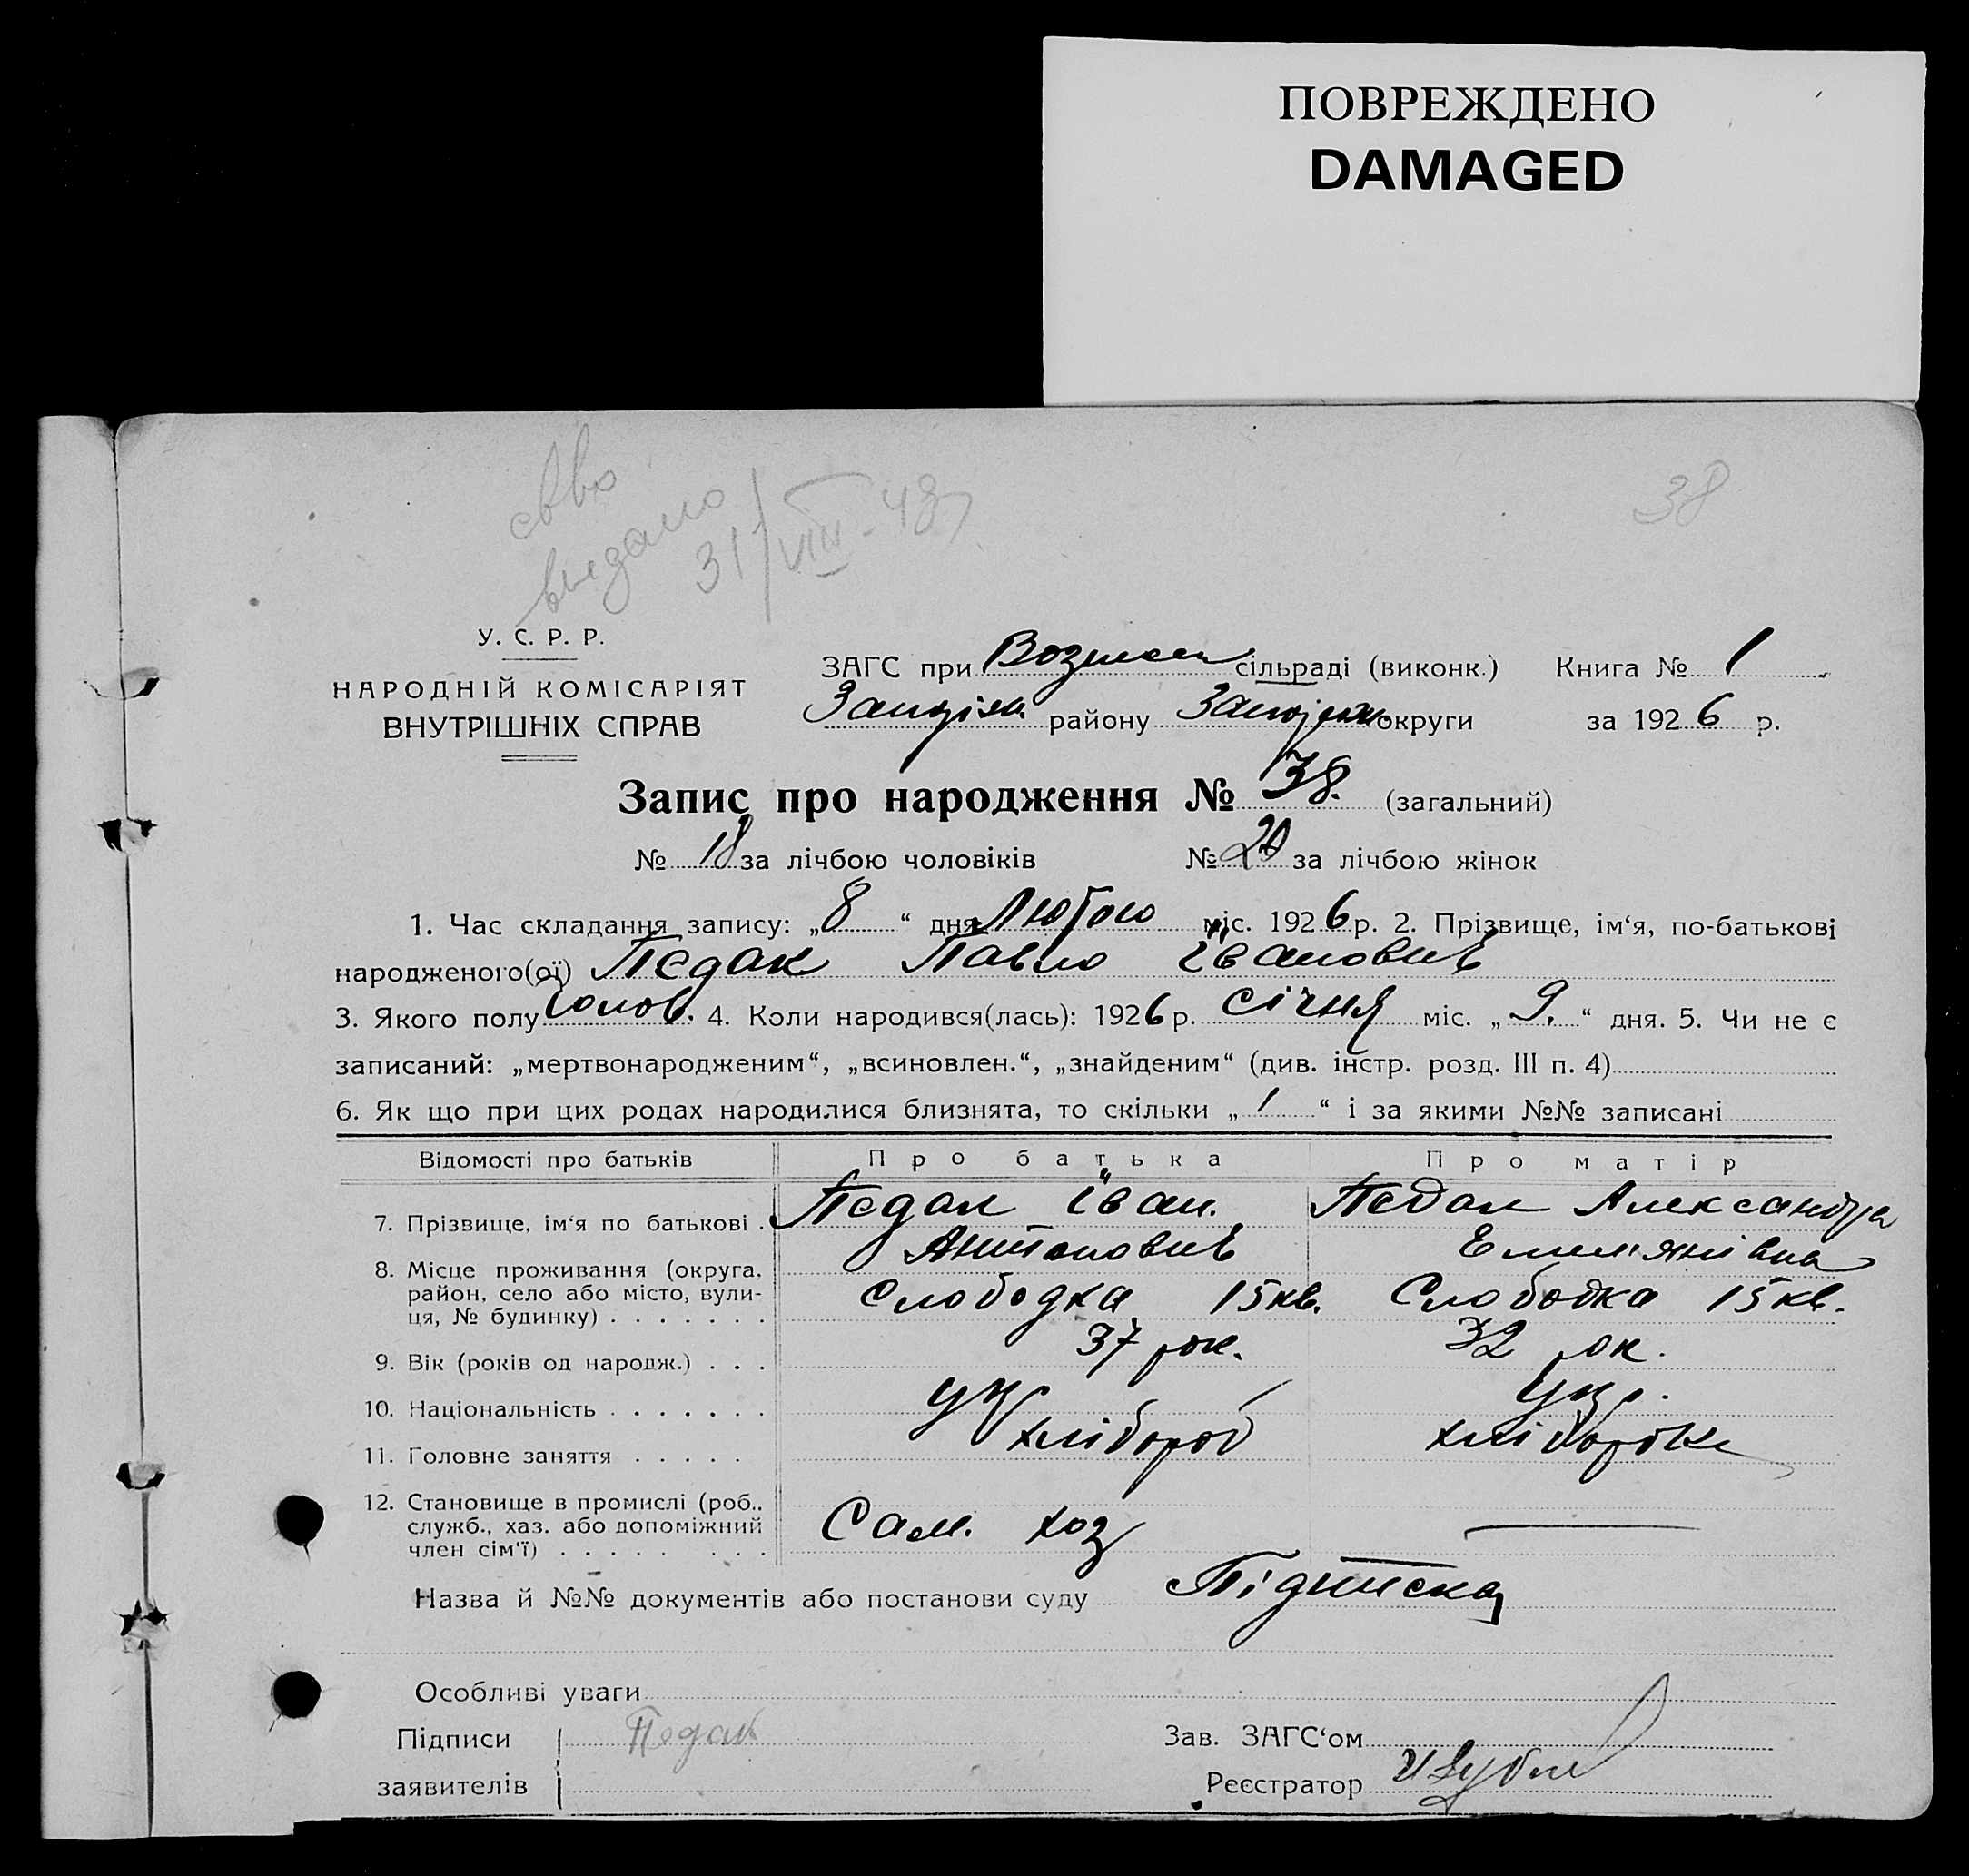 ПОВРЕЖДЕНО
DAMAGED
38
св-во
выдано
31/VIII-48
У. С. Р. Р.
НАРОДНІЙ КОМІСАРІЯТ
ВНУТРІШНІХ СПРАВ
ЗАГС при сільраді (виконк.) Книга № 1
району округи за 1926 р.
Запис про народження № 38. (загальний)
№ 18 за лічбою чоловіків № 20 за лічбою жінок
1. Час складання запису: „8“ дня Лютого міс. 1926 р. 2. Прізвище, ім‘я, по-батькові
народженого(ої) Педак Павло Івановив
3. Якого полу Чолов. 4. Коли народився(лась): 1926 р. Січня міс. „9.“ дня. 5. Чи не є
записаний: „мертвонародженим“, „всиновлен.“, „знайденим“ (див. інстр. розд. III п. 4)
6. Як що при цих родах народилися близнята, то скільки „1“ і за якими №№ записані
Відомості про батьків Про батька Про матір
7. Прізвище, ім‘я по батькові . Педак Іван. Педак Александра
Антоновив Емил'янівна
8. Місце проживання (округа, район, село або місто, вули- ця, № будинку) . . . . . . . Слободка 15 кв. Слободка 15 кв.
9. Вік (років од народж.) . . . 37 рок. 32 рок.
10. Національність . . . . . . . Укр Укр.
11. Головне заняття . . . . . хлібороб хліборобка
12. Становище в промислі (роб., служб., хаз. або допоміжний член сім‘ї) . . . . . . . . Сам. хоз —
Назва й №№ документів або постанови суду Підписка
Особливі уваги
Підписи Педак Зав. ЗАГС‘ом
заявителів Реєстратор